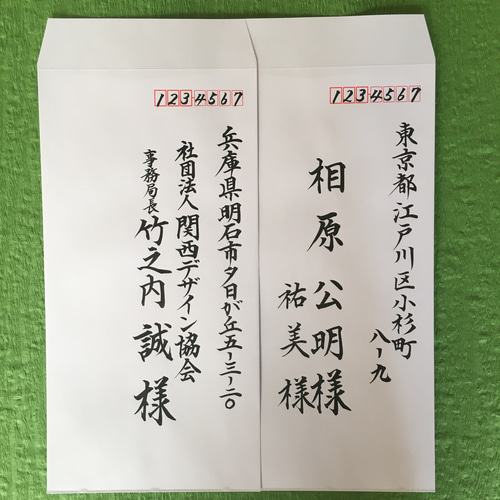 1234567
東京都江戸川区小杉町
八-九
相原公明様
祐美様
1234567
兵庫県明石市夕日が丘五-三-二〇
社団法人関西デザイン協会
事務局長竹之内誠様